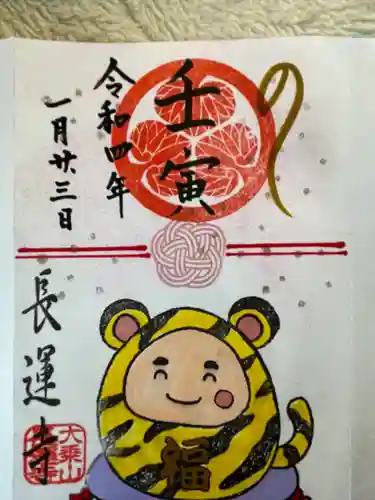 壬寅
令和四年
一月廿三日
長運寺
福
大乗山